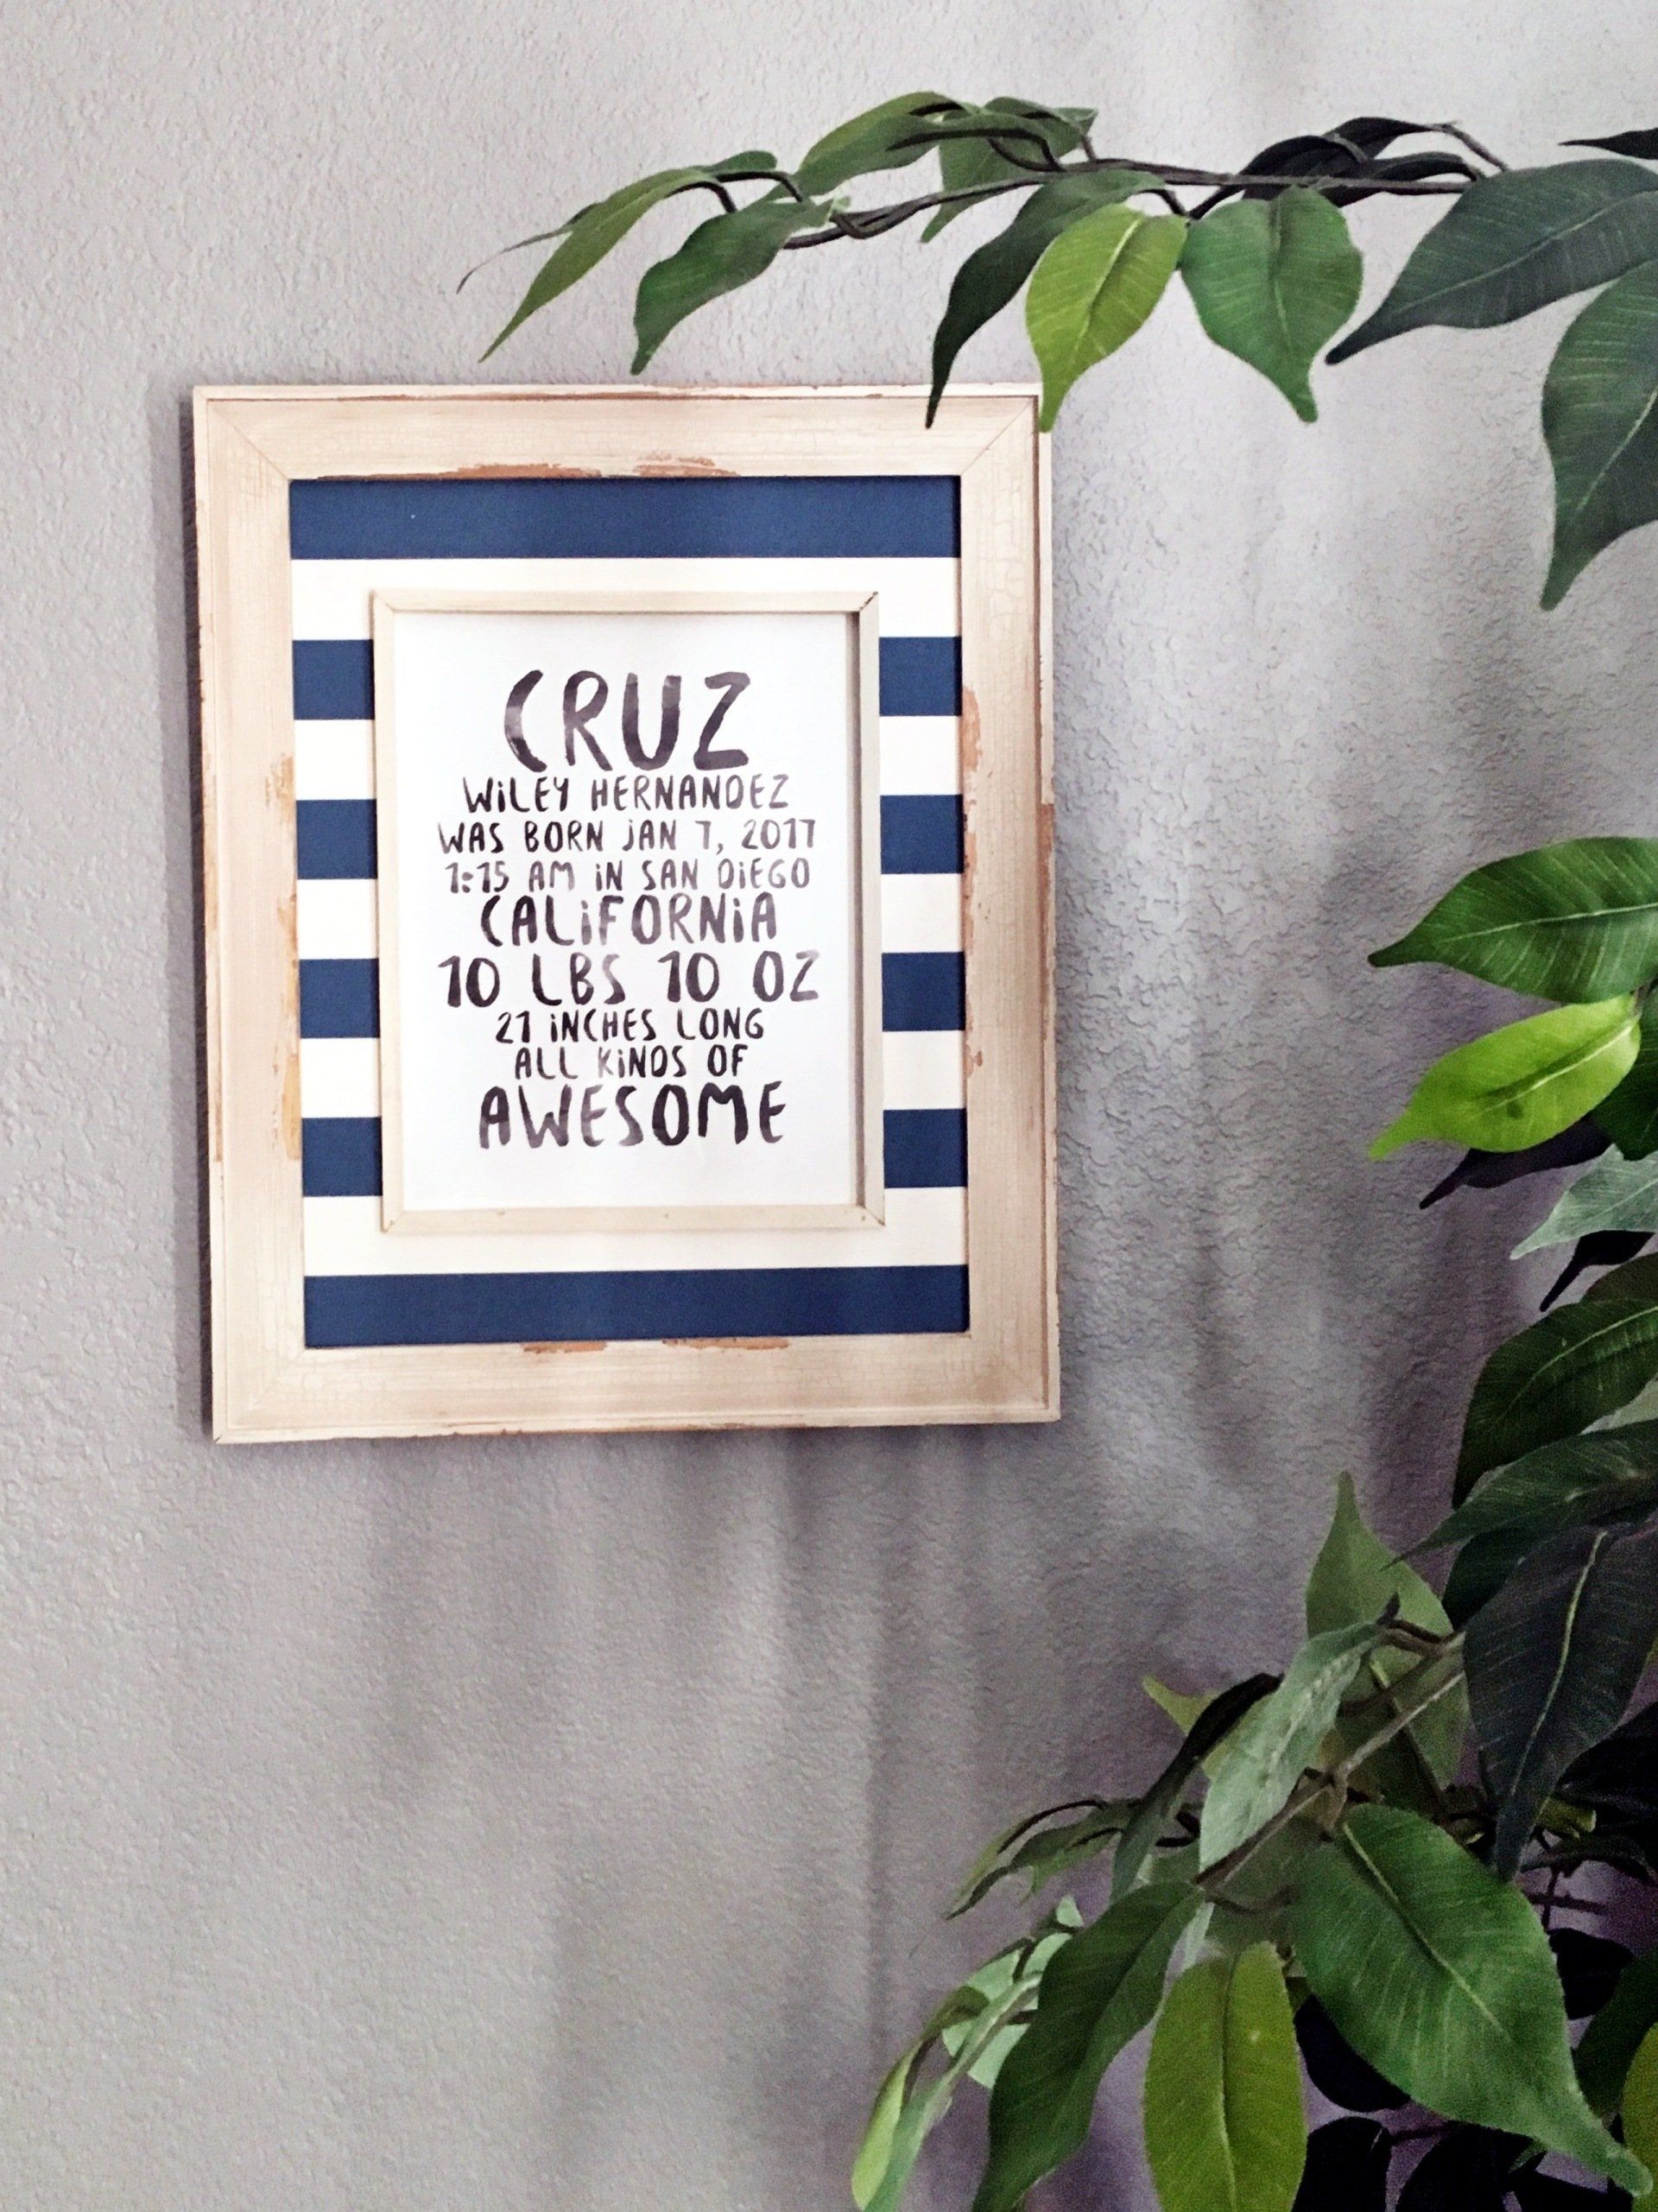 CRUZ
WiLEY HERNANDEZ
WAS BORN JAN 7, 2017
1:15 AM iN SAN DiEGO
CALiFORNiA
10 LBS 10 OZ
21 iNCHES LONG
ALL KiNDS OF
AWESOME